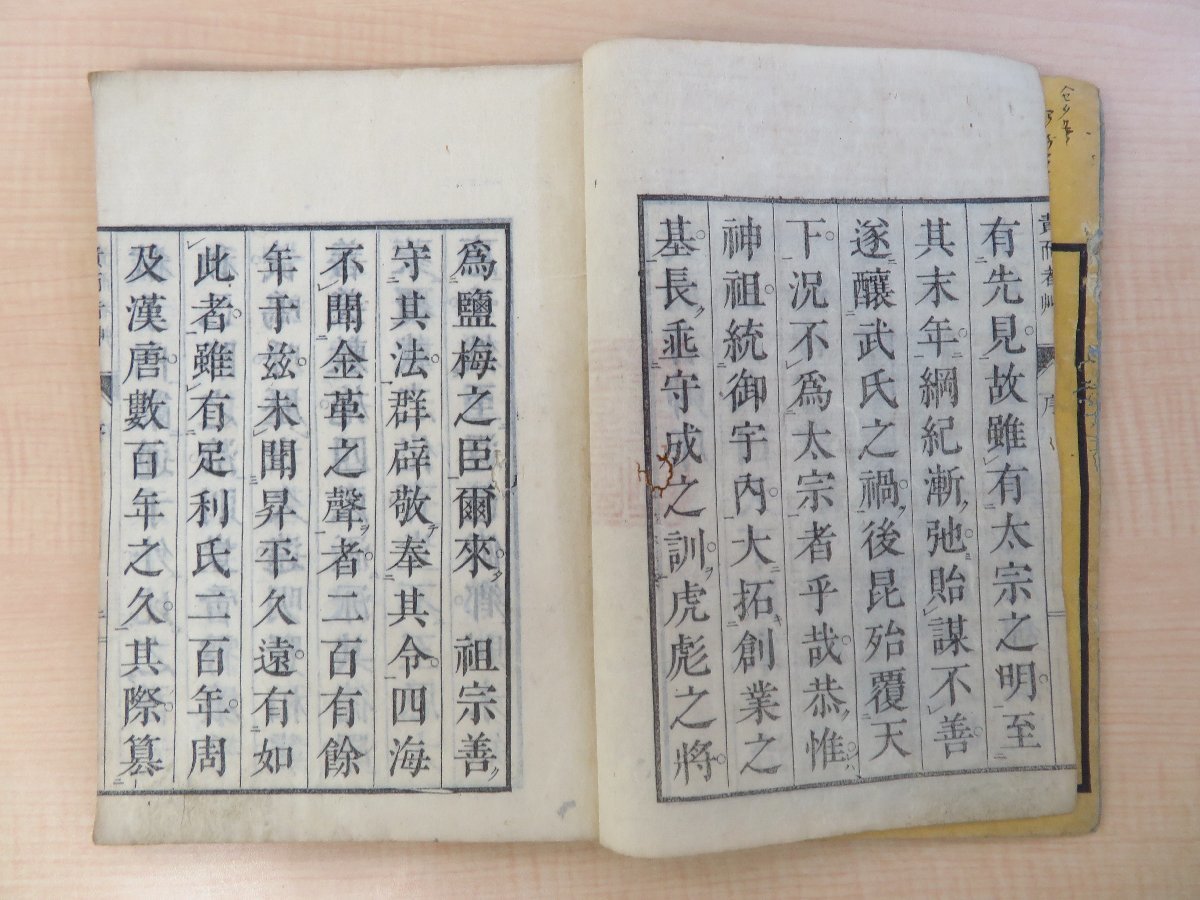 有先見故雖有太宗之明至
其末年綱紀漸弛貽謀不善
遂釀武氏之禍後昆殆覆天
下況不爲太宗者乎哉恭惟
神祖統御宇內大拓創業之
基長垂守成之訓虎彪之將
爲鹽梅之臣爾來祖宗善
守其法群辟敬奉其令四海
不聞金革之聲者二百有餘
年于兹未聞昇平久遠有如
此者雖有足利氏二百年周
及漢唐數百年之久其際篡